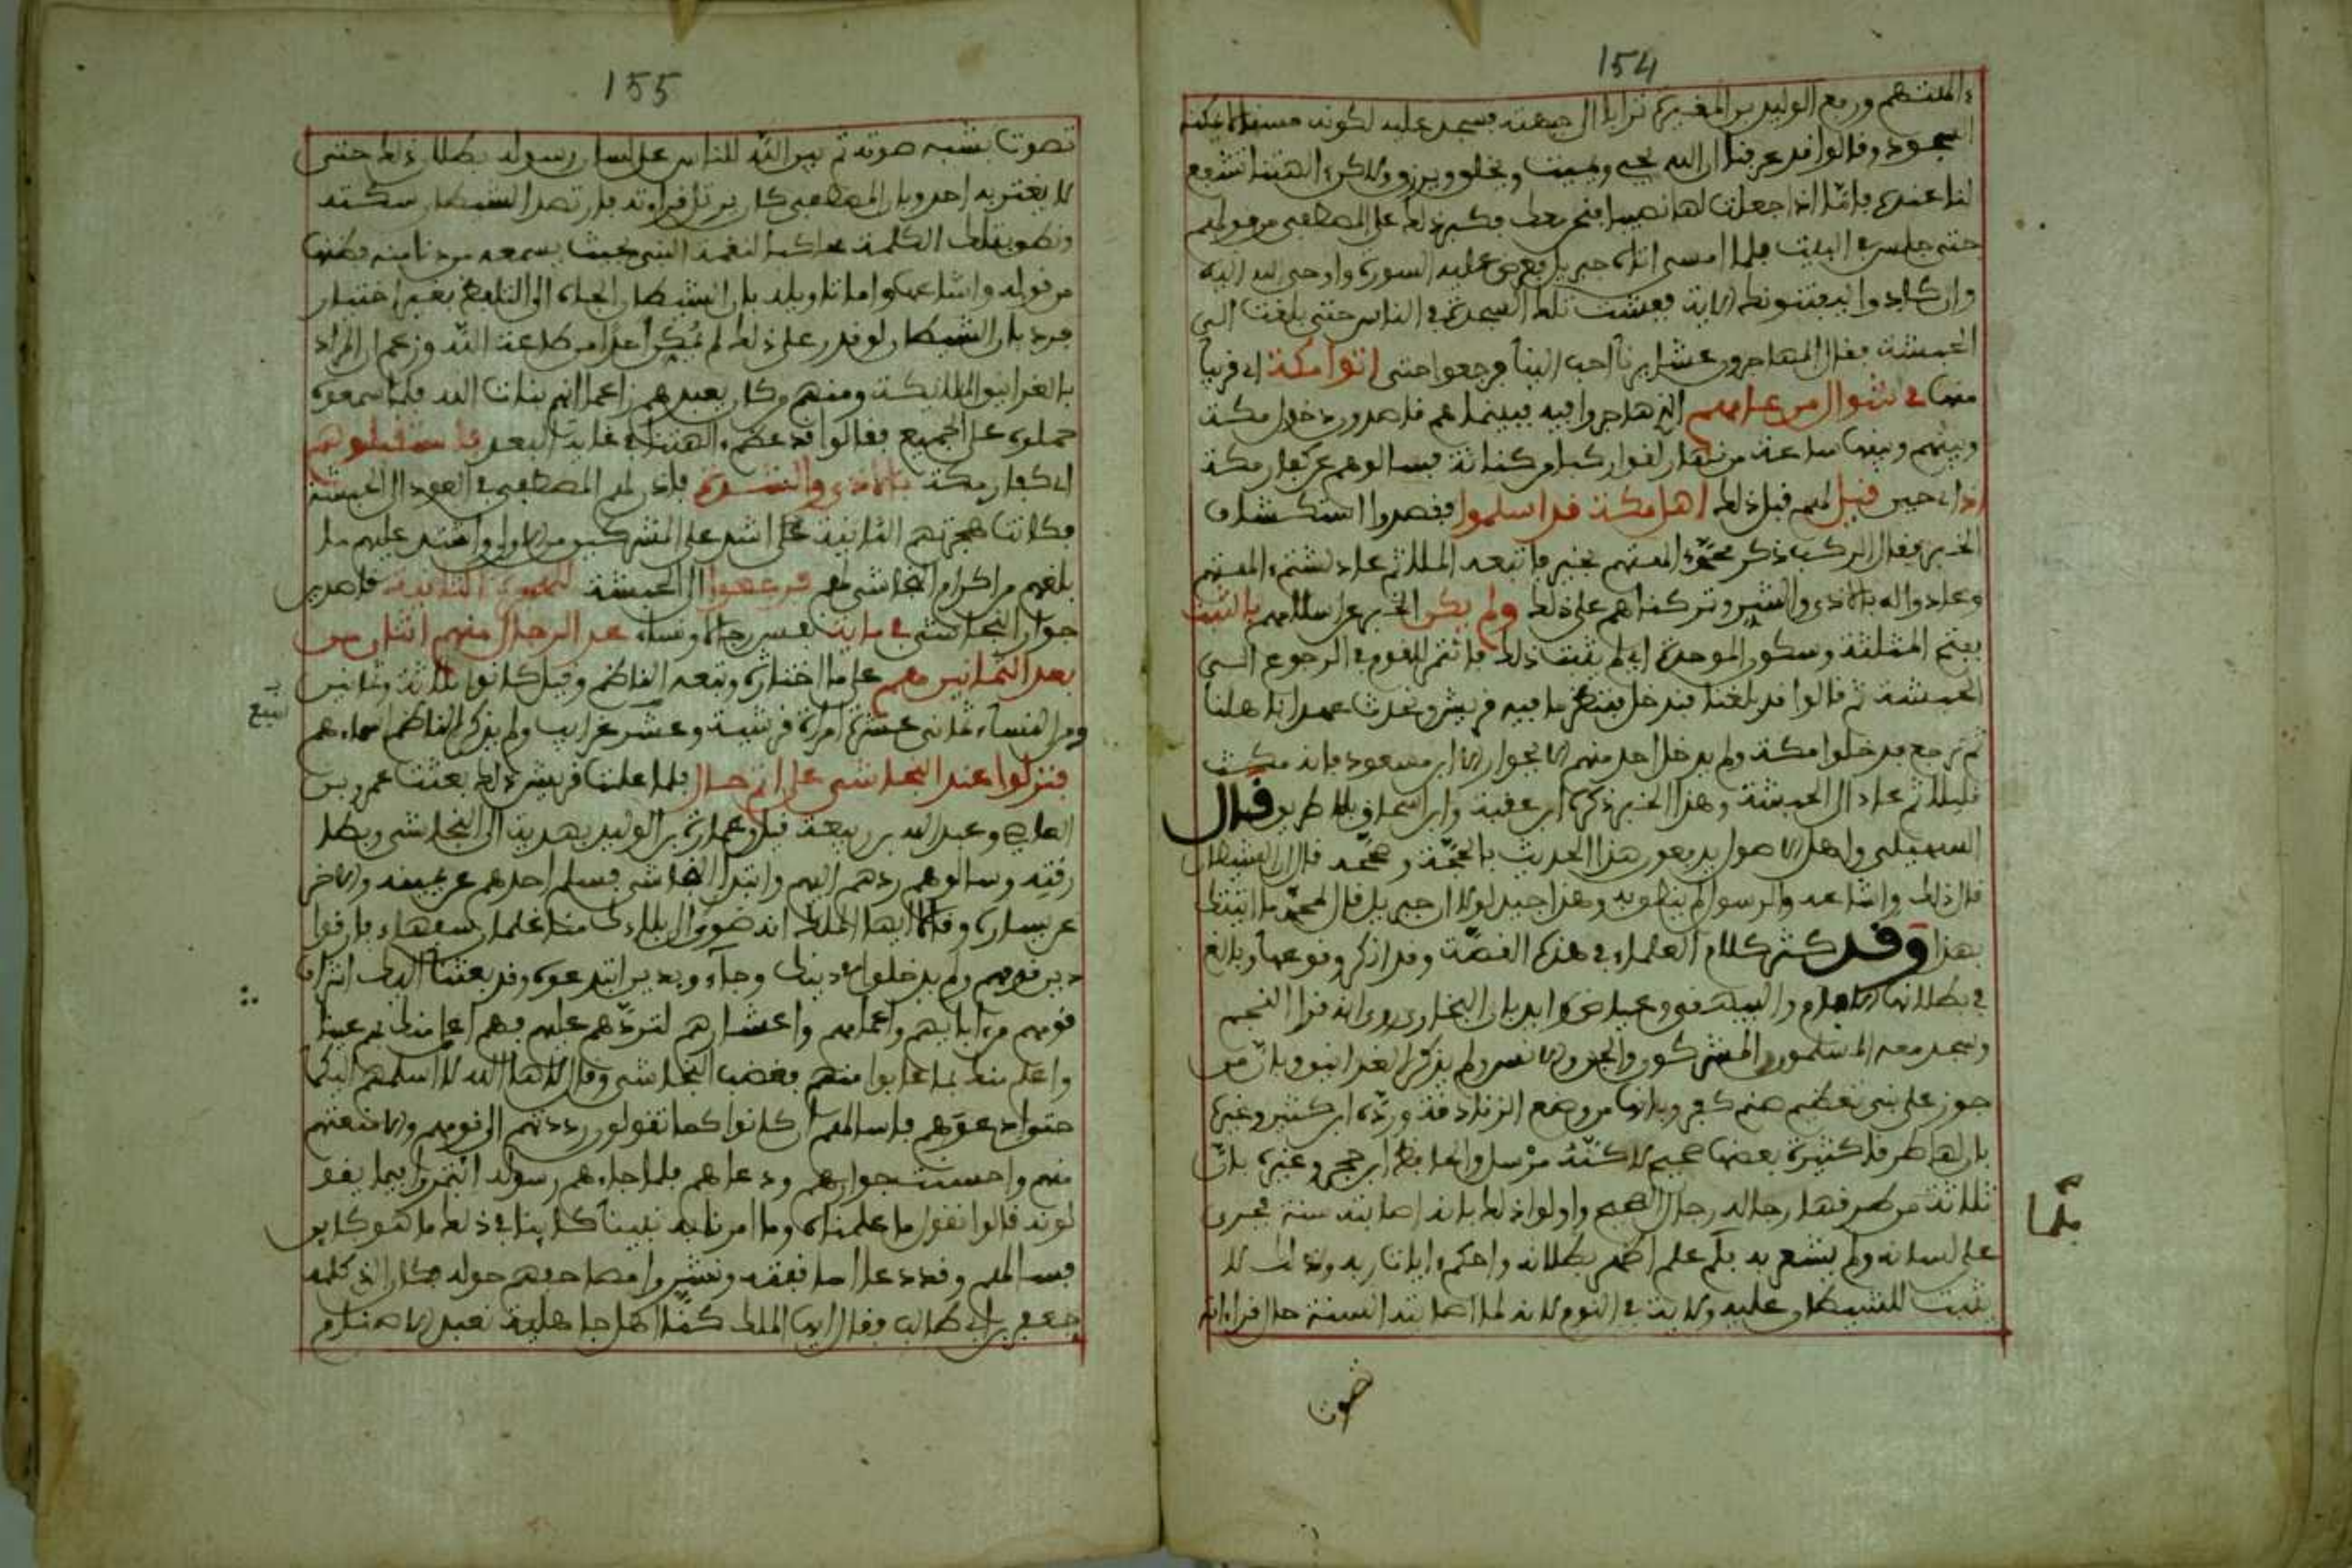 154
ءالهتهم ورفع الوليد بن المغيرة ترابا الى جبهته فسجد عليه لكونه مسنا لا يمكنه
السجود وقالوا قد عرفنا ان الله يحيي ويميت ويخلق ويرزق ولاكن ءالهتنا تشفع
لنا عنده فامّا اذا جعلت لها نصيبا فنحن معك فكبر ذلك على المصطفى من قولهم
حتى جلس في البيت فلما امسى اتاه جبريل فعرض عليه السورة واوحى الله اليه
وان كادوا ليفتنونك الاية ففشت تلك السجدة في الناس حتى بلغت الى
الحبشة فقال المهاجرون عشايرنا احب الينا فرجعوا حتى اتوا مكة اي قريبا
منها في شوال من عامهم الذي هاجروا فيه فبينما هم قاصدون دخول مكة
وبينهم وبينها ساعة من نهار لقوا ركبا من كنانة فسالوهم عن كفار مكة
اذ اي حين قيل لهم قبل ذلك اهل مكة قد اسلموا فقصدوا استكشاف
الخبر فقال الركب ذكر محمد ءالهتهم بخير فاتبعه الملا ثم عاد لشتم ءالهتهم
وعادوا له بالاذى والشر وتركناهم على ذلك ولم يكن الخبر عن اسلامهم بالثبت
بفتح المثلثة وسكون الموحدة اي لم يثبت ذلك فائتمر القوم في الرجوع الى
الحبشة ثم قالوا قد بلغنا فندخل فننظر ما فيه قريش ونحدث عهدا باهلنا
ثم نرجع فدخلوا مكة ولم يدخل احد منهم الا بجوار الا ابن مسعود فانه مكث
قليلا ثم عاد الى الحبشة وهذا الخبر ذكره ابن عقبة وابن اسحاق بلا طريق قال
السهيلي واهل الاصول يدفعون هذا الحديث بالحجّة ومن صححه قال ان الشيطان
قال ذلك واشاعه والرسول لم ينطق به وهذا جيد لولا ان جبريل قال لمحمد ما اتيتك
بهذا وقد كثر كلام العلماء في هذه القصّة وقد انكر وقوعها وبالغ
في بطلانها الامام والبيهقي وعياض وايد بان البخاري روى انه قرا النجم
وسجد معه المسلمون والمشركون والجن والانس ولم يذكر الغرانيق وبان من
جوز على نبي تعظيم صنم كفر وبانها من وضع الزنادقة وردّه ابن كثير وغيره
بان لها طرقا كثيرة بعضها صحيح لاكنّه مرسل والحافظ ابن حجر وغيره بان
ثلاثة من طرقها رجاله رجال الصحيح واولوا ذلك بانه اصابته سنة فجرى
على لسانه ولم يشعر به فلم علم اظهر بطلانه واحكم ءايات ربه وذلك لا
يثبت للشيطان عليه ولاية في النوم لانه لما اصابته السنة حال قراءته
فلمّا
صوت
155
تصوت بشبه صوته ثم بين الله للناس على لسان رسوله بطلان ذلك حتى
لا يغتر به احد وبان المصطفى كان يرتل قراءته فارتصد الشيطان سكتة
ونطق بتلك الكلمة محاكيا لنغمة النبي بحيث يسمعه من دنا منه فظنها
من قوله واشاعها واما تاويله بان الشيطان الجاه الى التلفظ بغير اختيار
فرد بان الشيطان لو قدر على ذلك لم يُمكن احدا من طاعة الله وزعم ان المراد
بالغرانيق الملائكة ومنهم من كان يعبدهم زاعما انهم بنات الله فلما سمعوه
حملوه على الجميع فقالوا قد عظم ءالهتنا في غاية البعد فاستقبلوهم
اي كفار مكة بالاذى والشدة فاذن لهم المصطفى في العود الى الحبشة
فكانت هجرتهم الثانية على اشد على المشركين من الاولى واشتد عليهم ما
بلغهم من اكرام النجاشي لهم فرجعوا الى الحبشة الهجرة الثانية قاصدين
جوار النجاشي في ماية نفس رجالا ونساء عد الرجال منهم اثنان من
بعد الثمانين معهم على ما اختاره وتبعه الناظم وقيل كانوا ثلاثة وثمانين
ومن النساء ثماني عشرة امراة قرشية وعشر غرايب ولم يذكر الناظم اسماءهم
فنزلوا عند النجاشي على اتم حال فلما علمت قريش ذلك بعثت عمرو بن
العاصي وعبد الله بن ربيعة قيل وعمارة بن الوليد بهدية الى النجاشي وبطا
رقته وسالوهم ردهم اليهم وابتدا النجاشي فسلم احدهم عن يمينه والاخر
عن يساره وقالا ايها الملك انه ضوى الى بلادك منا غلمان سفهاء فارقوا
دين قومهم ولم يدخلوا في دينك وجاءوا بدين ابتدعوه وقد بعثنا اليك اشراف
قومهم من ءابايهم واعمامهم وعشايرهم لتردّهم عليهم فهم اعلى منك بهم عينا
واعلم منك بما عابوا منهم فغضب النجاشي وقال لا ها الله لا اسلمهم اليكما
حتى ادعوهم فاسالهم ان كانوا كما تقولون رددتهم الى قومهم والا منعتهم
منهم واحسنت جوارهم ودعاهم فلما جاءهم رسوله ائتمروا فيما يقو
لونه قالوا نقول ما علمناه وما امرنا به نبينا كاينا في ذلك ما هو كاين
فسالهم وقد دعا اساقفته ونشروا مصاحفهم حوله فكان الذي كلمه
جعفر بن ابي طالب فقال ايها الملك كنّا اهل جاهلية نعبد الاصنام